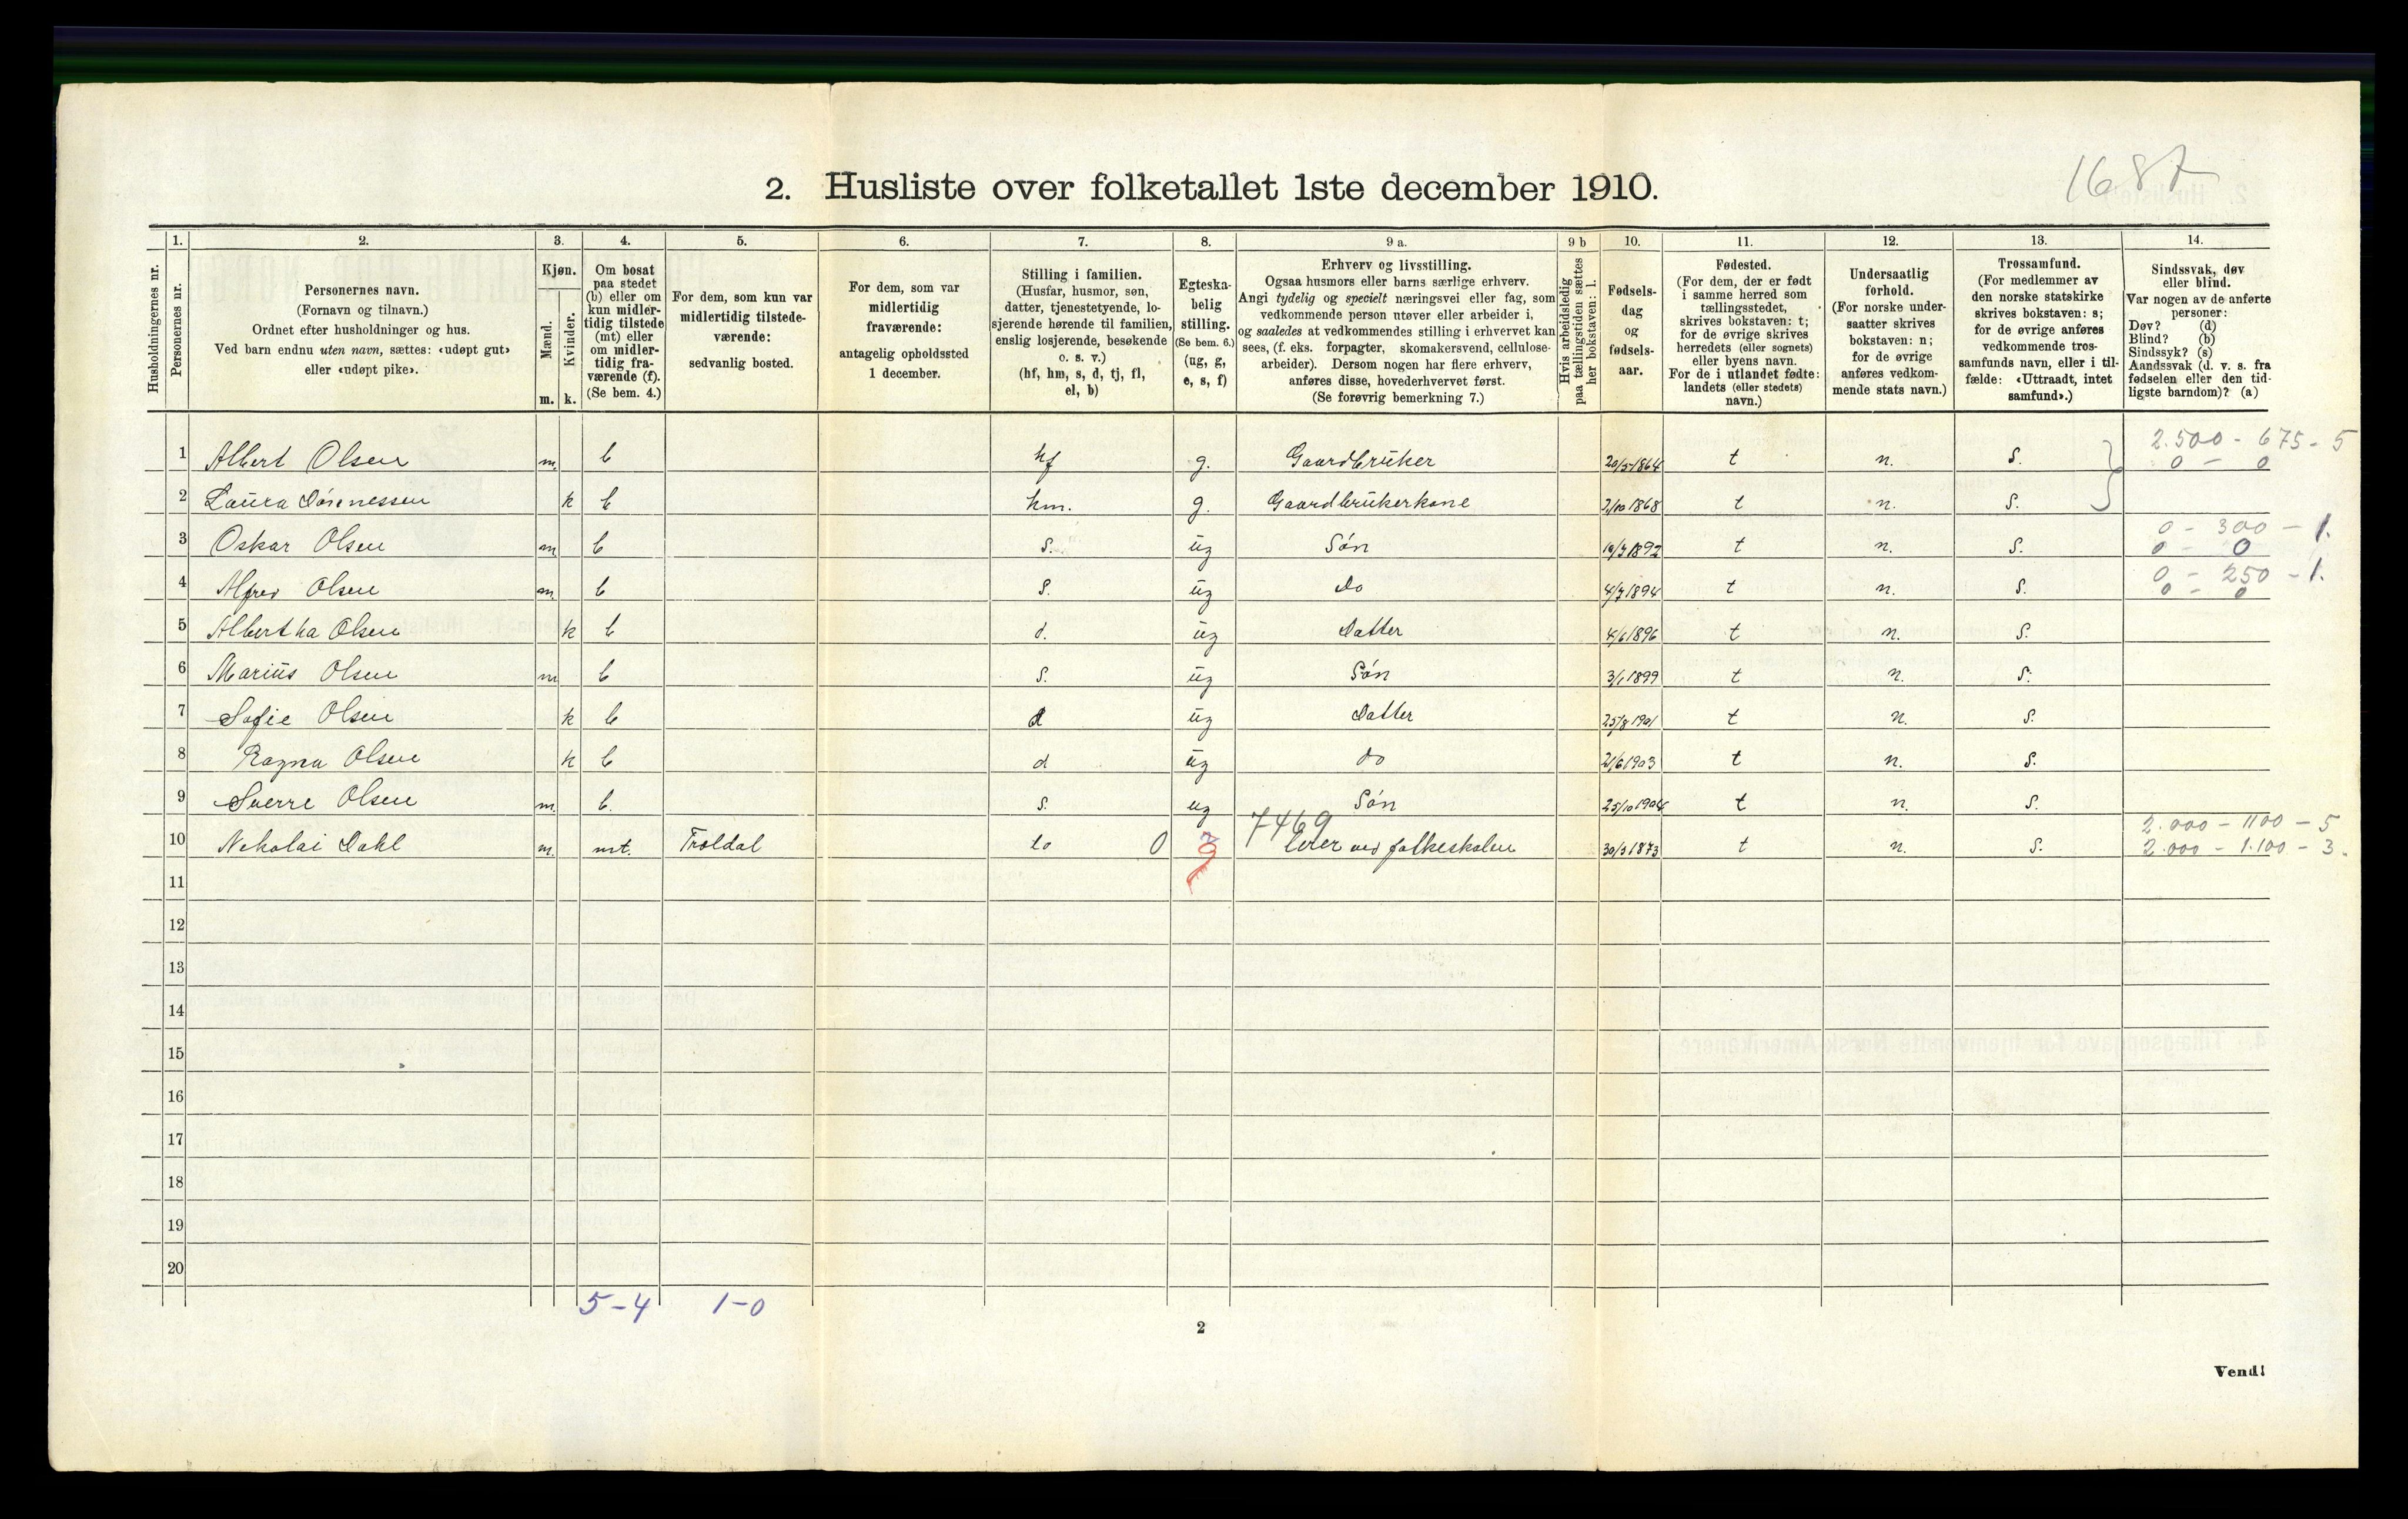 1687
2. Husliste over folketallet 1ste december 1910.
Husholdningernes nr.
1.
Personernes nr.
2.
Personernes navn.
(Fornavn og tilnavn.)
Ordnet efter husholdninger og hus.
Ved barn endnu uten navn, sættes: «udøpt gut»
eller «udøpt pike».
3.
Kjøn.
Mænd.
Kvinder.
m. k.
4.
Om bosat
paa stedet
(b) eller om
kun midler-
tidig tilstede
(mt) eller
om midler-
tidig fra-
værende (f).
(Se bem. 4.)
5.
For dem, som kun var
midlertidig tilstede-
værende:
sedvanlig bosted.
6.
For dem, som var
midlertidig
fraværende:
antagelig opholdssted
1 december.
7.
Stilling i familien.
(Husfar, husmor, søn,
datter, tjenestetyende, lo-
sjerende hørende til familien,
enslig losjerende, besøkende
o. s. v.)
(hf, hm, s, d, tj, fl,
el, b)
8.
Egteska-
belig
stilling.
(Se bem. 6.)
(ug, g,
e, s, f)
9 a.
Erhverv og livsstilling.
Ogsaa husmors eller barns særlige erhverv.
Angi tydelig og specielt næringsvei eller fag, som
vedkommende person utøver eller arbeider i,
og saaledes at vedkommendes stilling i erhvervet kan
sees, (f. eks. forpagter, skomakersvend, cellulose-
arbeider). Dersom nogen har flere erhverv,
anføres disse, hovederhvervet først.
(Se forøvrig bemerkning 7.)
9 b
Hvis arbeidsledig
paa tællingstiden sættes
her bokstaven: l.
10.
Fødsels-
dag
og
fødsels-
aar.
11.
Fødested.
(For dem, der er født
i samme herred som
tællingsstedet,
skrives bokstaven: t;
for de øvrige skrives
herredets (eller sognets)
eller byens navn.
For de i utlandet fødte:
landets (eller stedets)
navn.)
12.
Undersaatlig
forhold.
(For norske under-
saatter skrives
bokstaven: n;
for de øvrige
anføres vedkom-
mende stats navn.)
13.
Trossamfund.
(For medlemmer av
den norske statskirke
skrives bokstaven: s;
for de øvrige anføres
vedkommende tros-
samfunds navn, eller i til-
fælde: «Uttraadt, intet
samfund».)
14.
Sindssvak, døv
eller blind.
Var nogen av de anførte
personer:
Døv? (d)
Blind? (b)
Sindssyk? (s)
Aandssvak (d. v. s. fra
fødselen eller den tid-
ligste barndom)? (a)
1 Albert Olsen m. b hf g. Gaardbruker 20/5 1864 t n. S. 2.500 - 675 - 5
0 - 0
2 Laura k b hm. g. Gaardbrukerkone 2/10 1868 t n. S.
3 Oskar Olsen m b S. ug Søn 1892 t n. S. 0 - 300 - 1.
0 - 0
4 Alfred Olsen m b S. ug Do 4/7 1894 t n. S. 0 - 250 - 1.
0 - 0
5 Albertha Olsen k b d. ug Datter 4/6 1896 t n. S.
6 Marius Olsen m b S. ug Søn 3/1 1899 t n. S.
7 Sofie Olsen k b d ug Datter 25/8 1901 t n. S.
8 Ragna Olsen k b d ug do 21/6 1903 t n. S.
9 Sverre Olsen m. b. S. ug Søn 25/10 1904 t n. S.
10 Nekolai Dahl m. mt. Troldal 0 7469 lærer ved folkeskolen 30/3 1873 t n. S. 2.000 - 1100 - 5
2.000 - 1.100 - 3.
11
12
13
14
15
16
17
18
19
20
5-4 1-0
2
Vend!